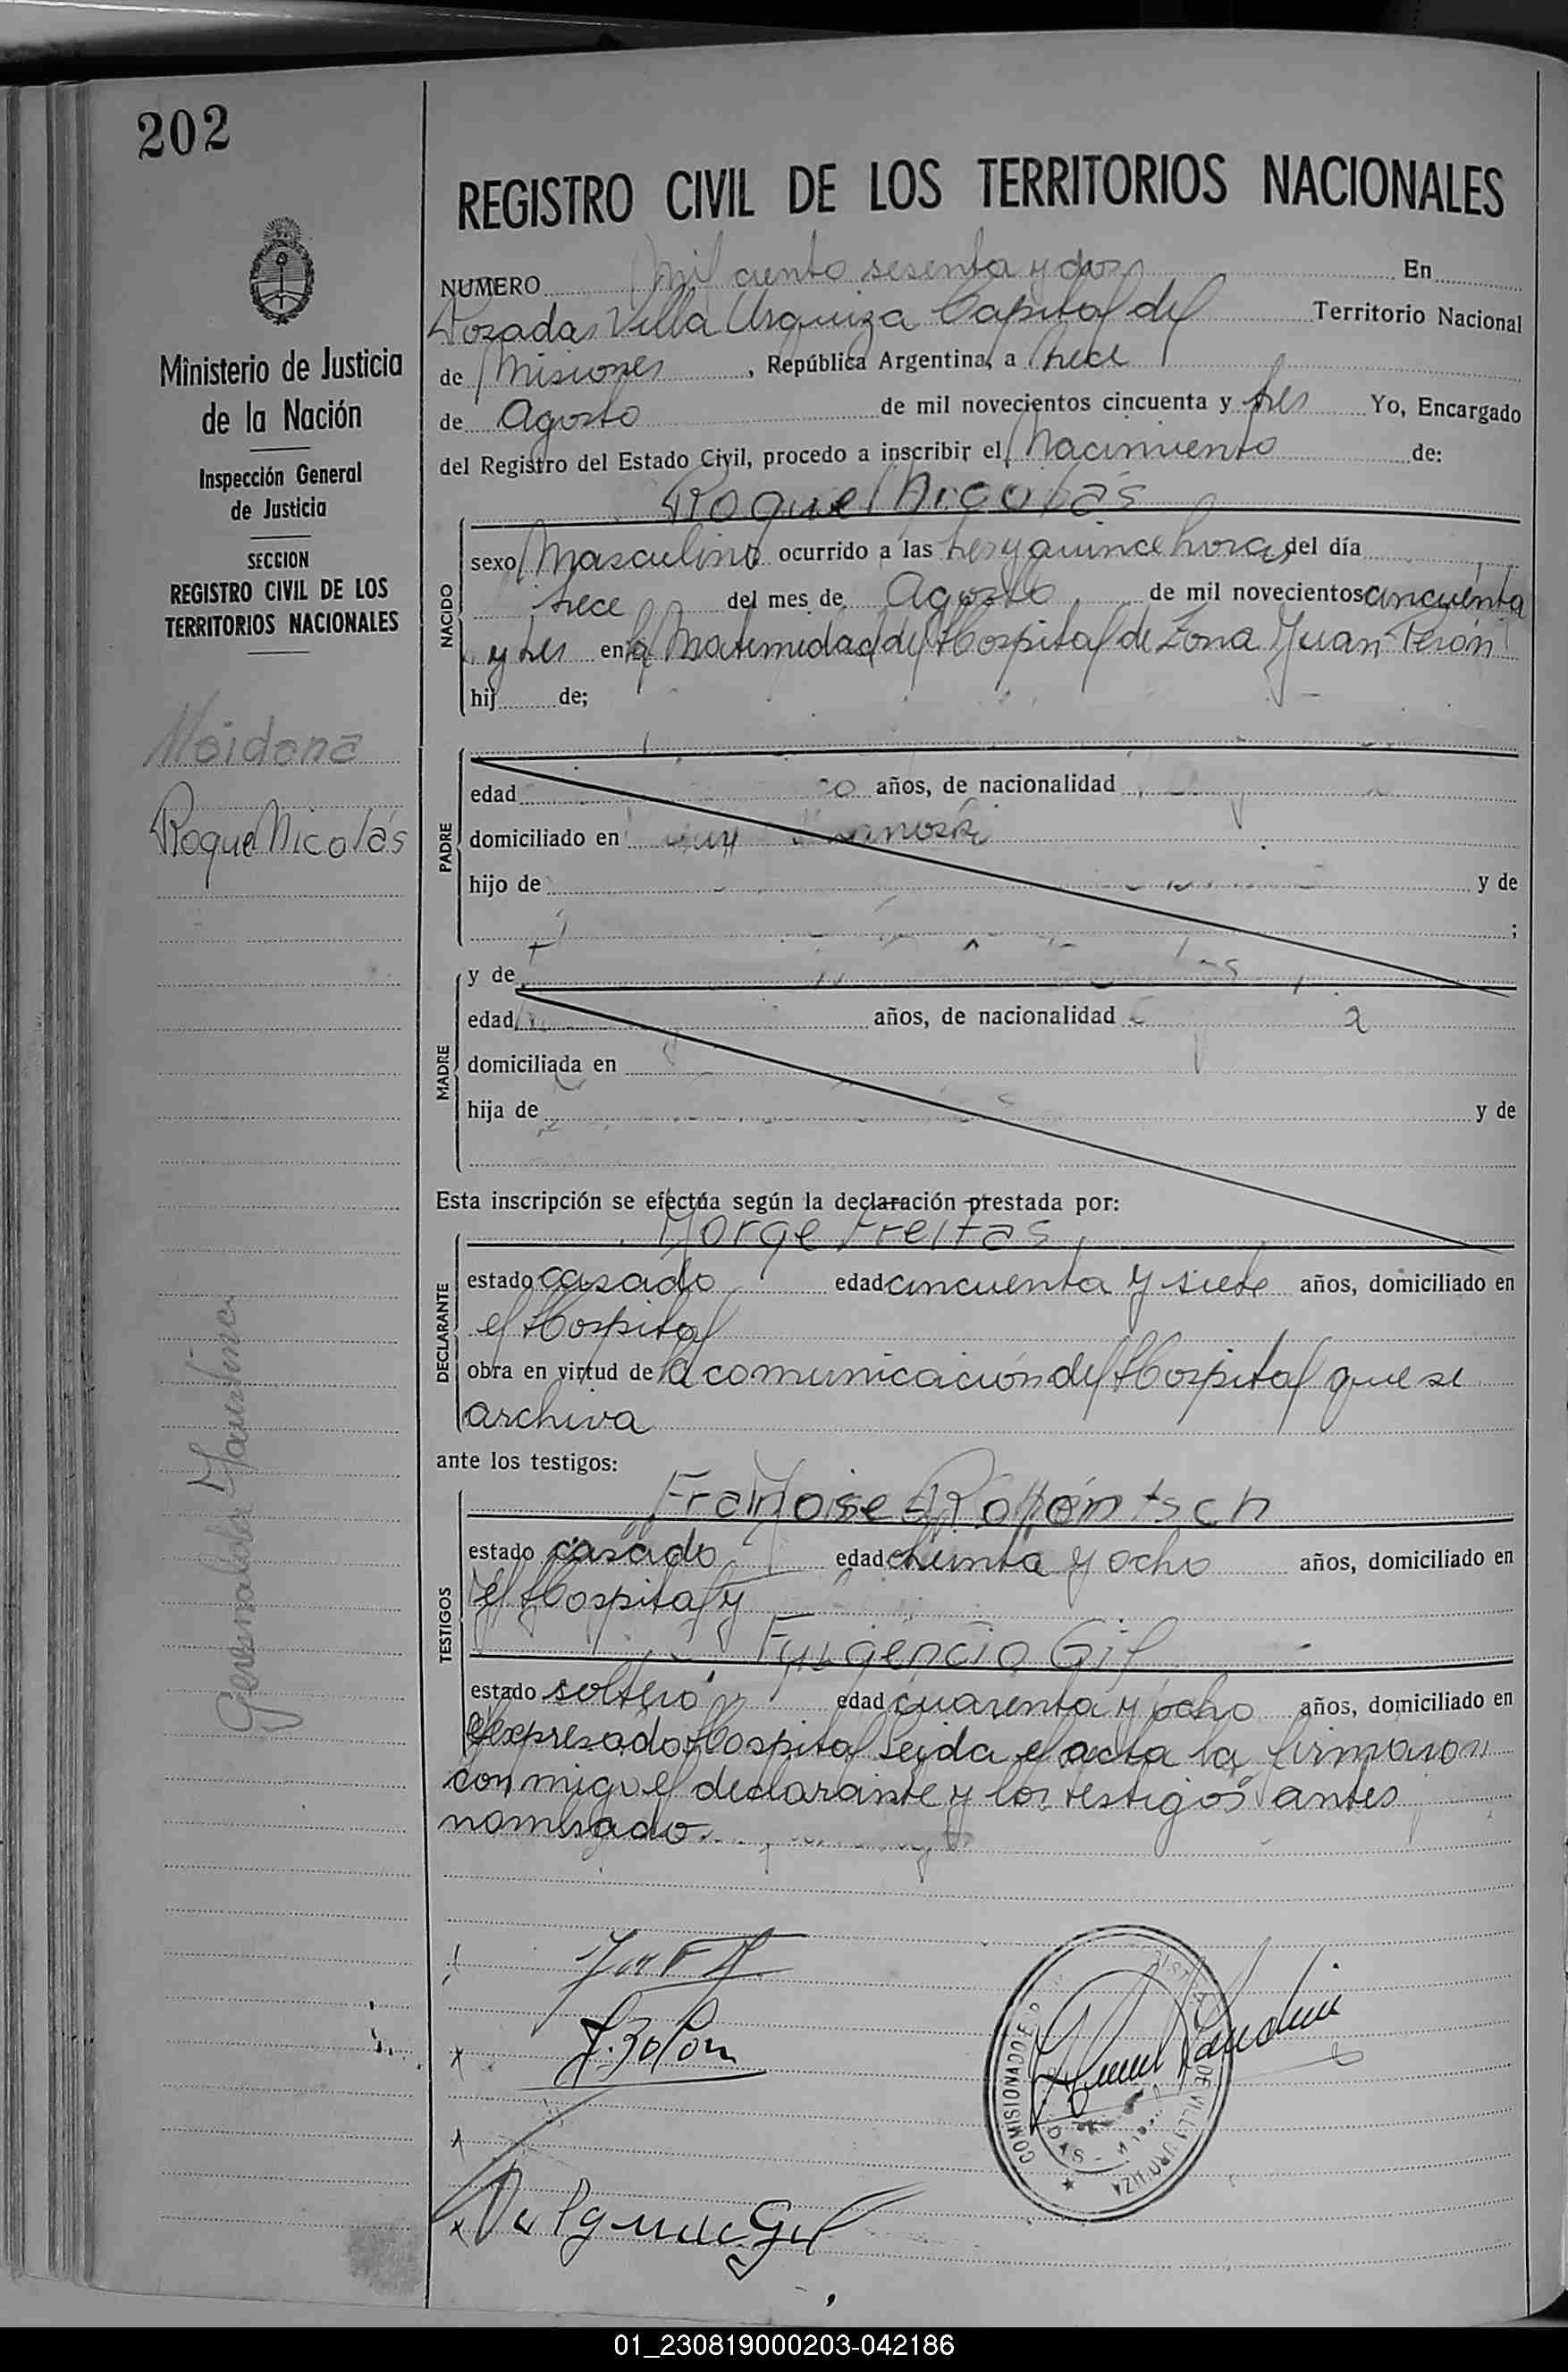 202
REGISTRO CIVIL DE LOS TERRITORIOS NACIONALES
NUMERO Mil ciento sesenta y dos En
Posadas Villa Urquiza Capital del Territorio Nacional
de Misiones, República Argentina, a trece
de Agosto de mil novecientos cincuenta y tres Yo, Encargado
del Registro del Estado Civil, procedo a inscribir el Nacimiento de:
Roque Nicolás
Ministerio de Justicia
de la Nación
Inspección General
de Justicia
SECCION
REGISTRO CIVIL DE LOS
TERRITORIOS NACIONALES
Maidana
Roque Nicolás
NACIDO
sexo Masculino ocurrido a las tres y quince horas del día
trece del mes de Agosto de mil novecientos cincuenta
y tres en la Maternidad del Hospital de Zona Juan Perón
hij de;
PADRE
edad años, de nacionalidad
domiciliado en
hijo de y de
;
MADRE
y de
edad años, de nacionalidad
domiciliada en
hija de y de
Esta inscripción se efectúa según la declaración prestada por:
Jorge Freitas
DECLARANTE
estado casado edad cincuenta y siete años, domiciliado en
el Hospital
obra en virtud de la comunicación del Hospital que se
archiva
ante los testigos:
TESTIGOS
estado casado edad treinta y ocho años, domiciliado en
el Hospital y
Fulgencio Gil
estado soltero edad cuarenta y ocho años, domiciliado en
el expresado Hospital Leída el acta la firmaron
conmigo el declarante y los testigos antes
nombrado.
COMISIONADO DE VILLA URQUIZA
01_230819000203-042186